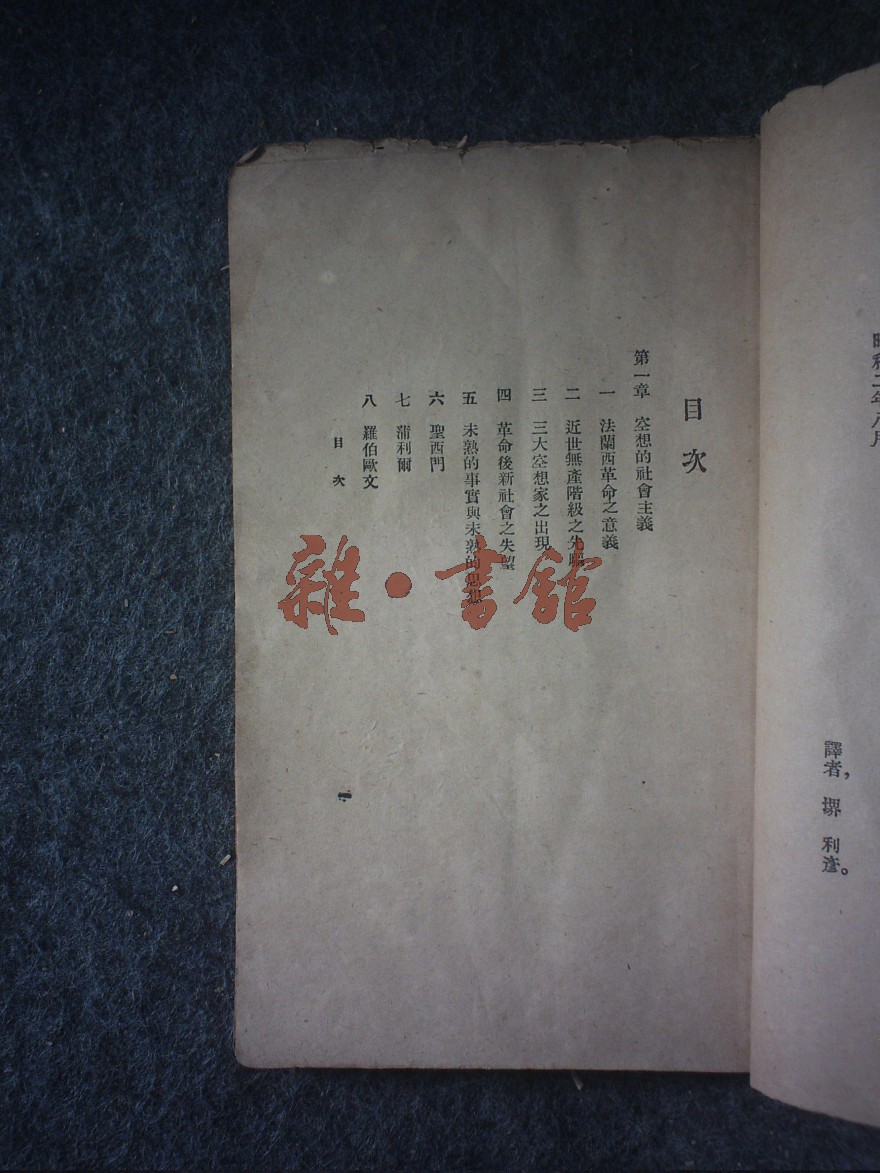 昭和二年八月
譯者, 堺 利彥。
目次
第一章 空想的社會主義
一 法蘭西革命之意義
二 近世無產階級之先驅
三 三大空想家之出現
四 革命後新社會之失望
五 未熟的事實與未熟的思想
六 聖西門
七 蒲利爾
八 羅伯歐文
目次
一
雜·書館